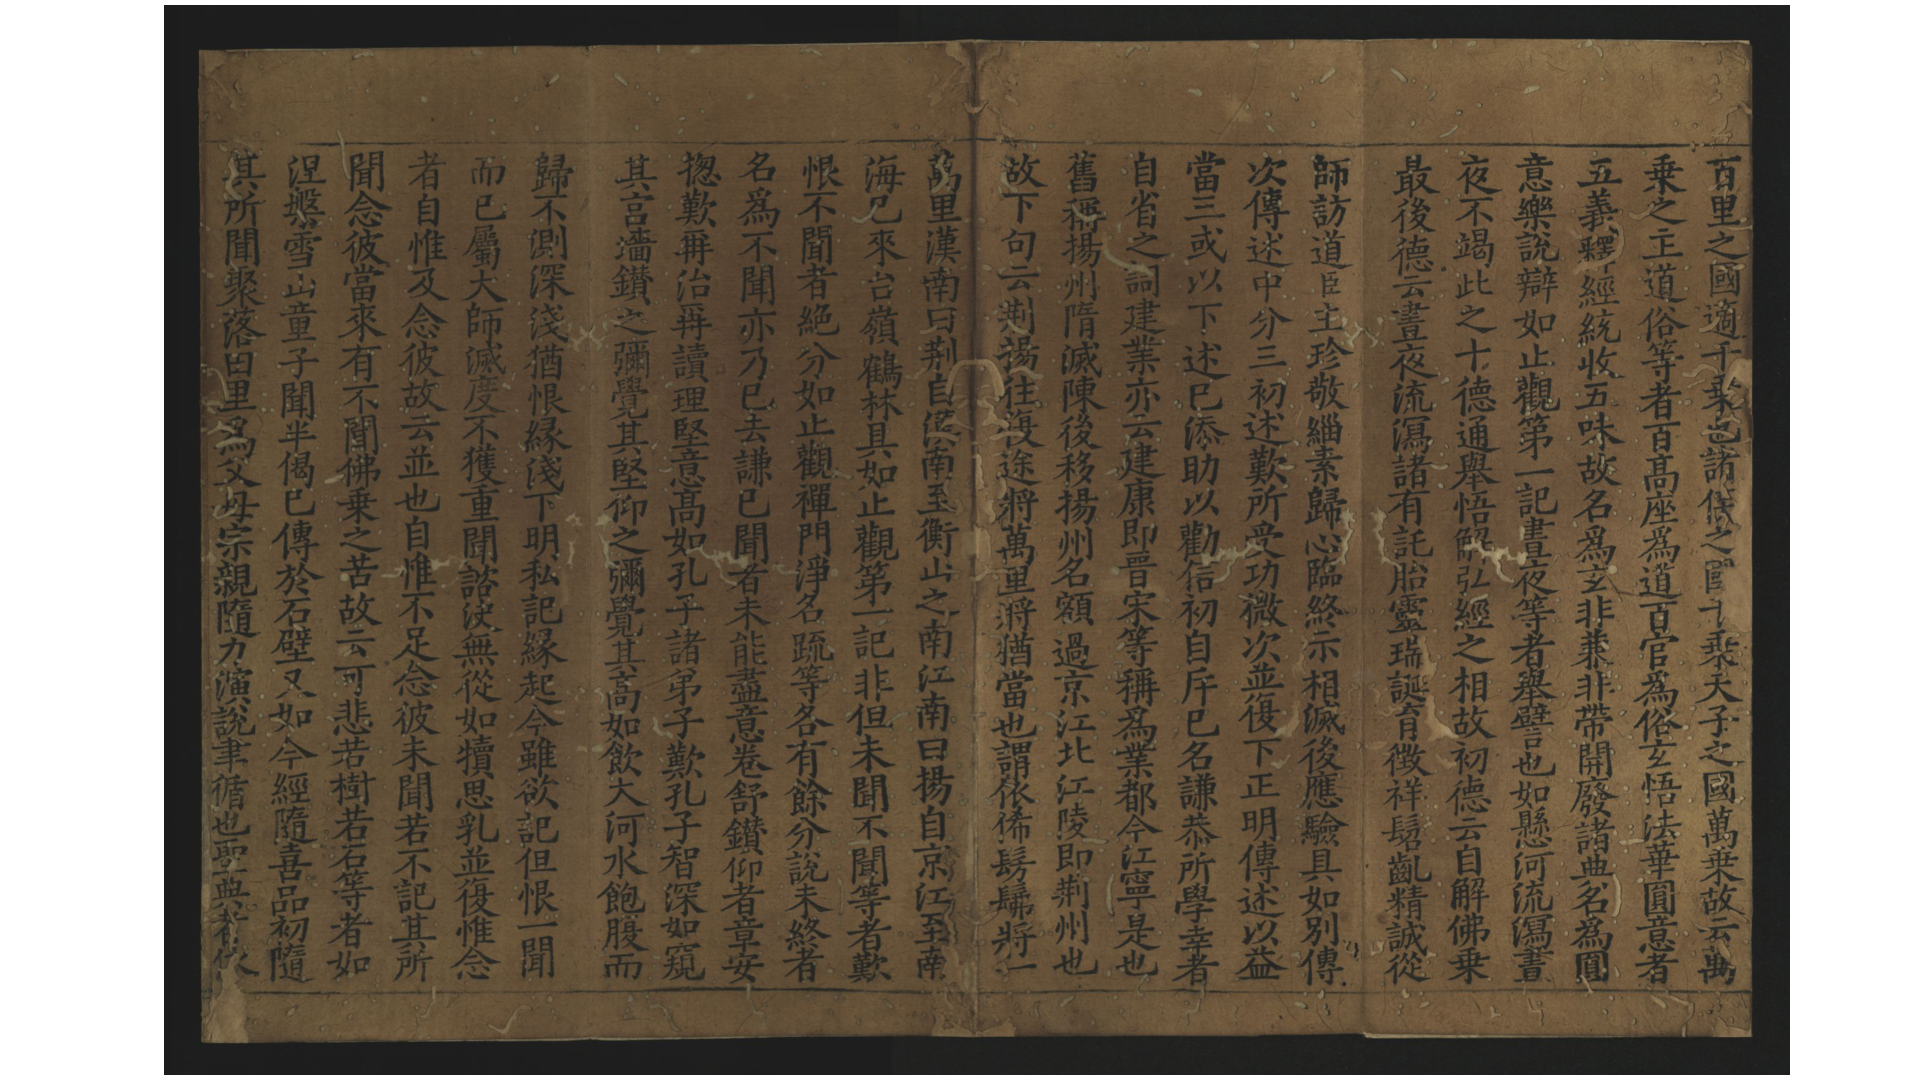 百里之國適千乘也諸侯之國千乘天子之國萬乘故云萬
乘之主道俗等者百高座爲道百官爲俗玄悟法華圓意者
五義釋經統收五味故名爲玄非兼非帶開廢諸典名爲圓
意樂說辯如止觀第一記晝夜等者舉譬也如懸河流瀉晝
夜不竭此之十德通舉悟解弘經之相故初德云自解佛乘
最後德云晝夜流瀉諸有託胎靈瑞誕育徵祥髫齓精誠從
師訪道臣主珍敬緇素歸心臨終示相滅後應驗具如別傳
次傳述中分三初述歎所受功微次並復下正明傳述以益
當三或以下述已添助以勸信初自斥已名謙恭所學幸者
自省之詞建業亦云建康即晉宋等稱爲業都今江寧是也
舊稱揚州隋滅陳後移揚州名額過京江北江陵即荆州也
故下句云荆揚往復途將萬里將猶當也謂依俙髣髴將一
萬里漢南曰荆自漢南至衡山之南江南曰揚自京江至南
海已來台嶺鶴林具如止觀第一記非但未聞不聞等者歎
恨不聞者絶分如止觀禪門淨名疏等各有餘分說未終者
名爲不聞亦乃已去謙已聞者未能盡意卷舒鑚仰者章安
揔歎再治再讀理堅意髙如孔子諸弟子歎孔子智深如窺
其宫墻鑚之彌覺其堅仰之彌覺其高如飲大河水飽腹而
歸不測深淺猶恨縁淺下明私記縁起今雖欲記但恨一聞
而已屬大師滅度不獲重聞諮決無從如犢思乳並復惟念
者自惟及念彼故云並也自惟不足念彼未聞若不記其所
聞念彼當來有不聞佛乘之苦故云可悲若樹若石等者如
涅槃雪山童子聞半偈已傳於石壁又如今經隨喜品初隨
其所聞聚落田里爲父母宗親隨力演說聿循也聖典者依